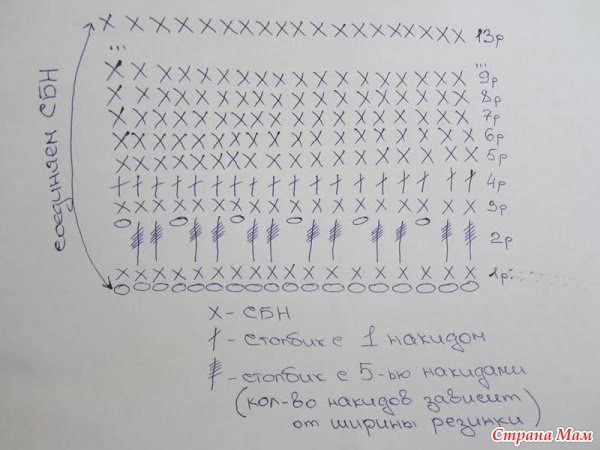 13р
...
...
9р
8р
7р
6р
5р
4р
3р
2р
1р
соединяем СБН
X - СБН
- столбик с 1 накидом
- столбик с 5-ью накидами
(кол-во накидов зависит
от ширины резинки)
Страна Мам